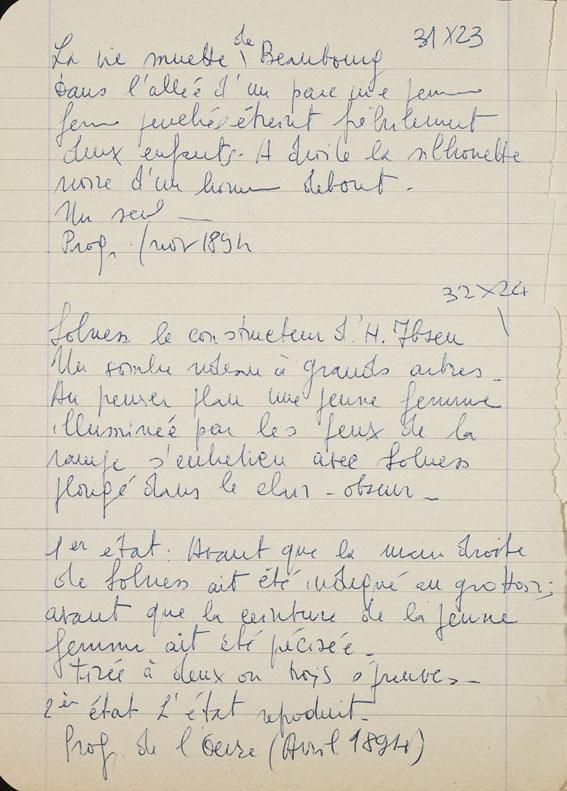 31 X 23
La vie muette de Beaubourg
Dans l'allée d'un parc une femme
femme penchée étreint fébrilement
deux enfants. A droite la silhouette
noire d'un homme debout.
Un seul —
Prog. / nov 1894
32 X 24
Solness le constructeur d'H. Ibsen
Un sombre rideau à grands arbres.
Au premier plan une jeune femme
illuminée par les feux de la
rampe s'entretien avec Solness
plongé dans le clair-obscur —
1er état. Avant que la main droite
de Solness ait été indiqué au grattoir;
avant que la ceinture de la jeune
femme ait été précisée.
Tirée à deux ou trois épreuves.—
2èr état L'état reproduit.
Prog. de l'Oeuvre (Avril 1894)